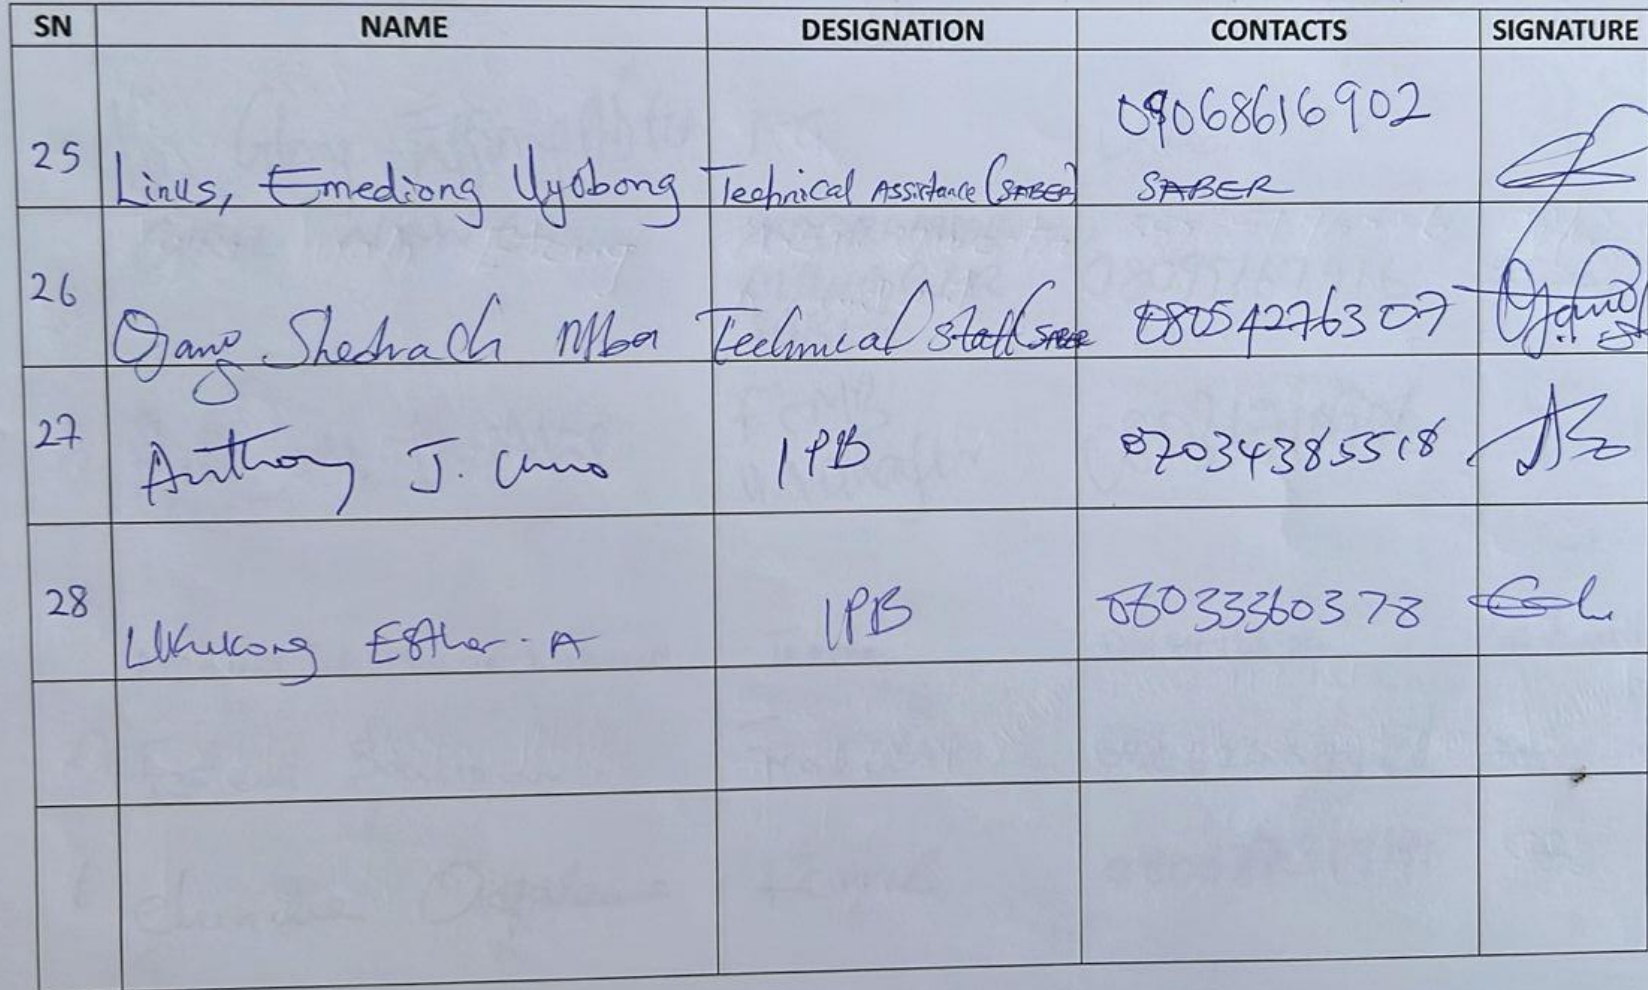 SN NAME DESIGNATION CONTACTS SIGNATURE
09068616902
25 Linus, Emediong Uyobong Technical Assistance (SABER) SABER
26 Ojang Shedrach Mba Technical Staff (SABER 08054276307
27 Anthony J. 1PB 07034385518
28 Ukukong Esther A 1PB 08033360378